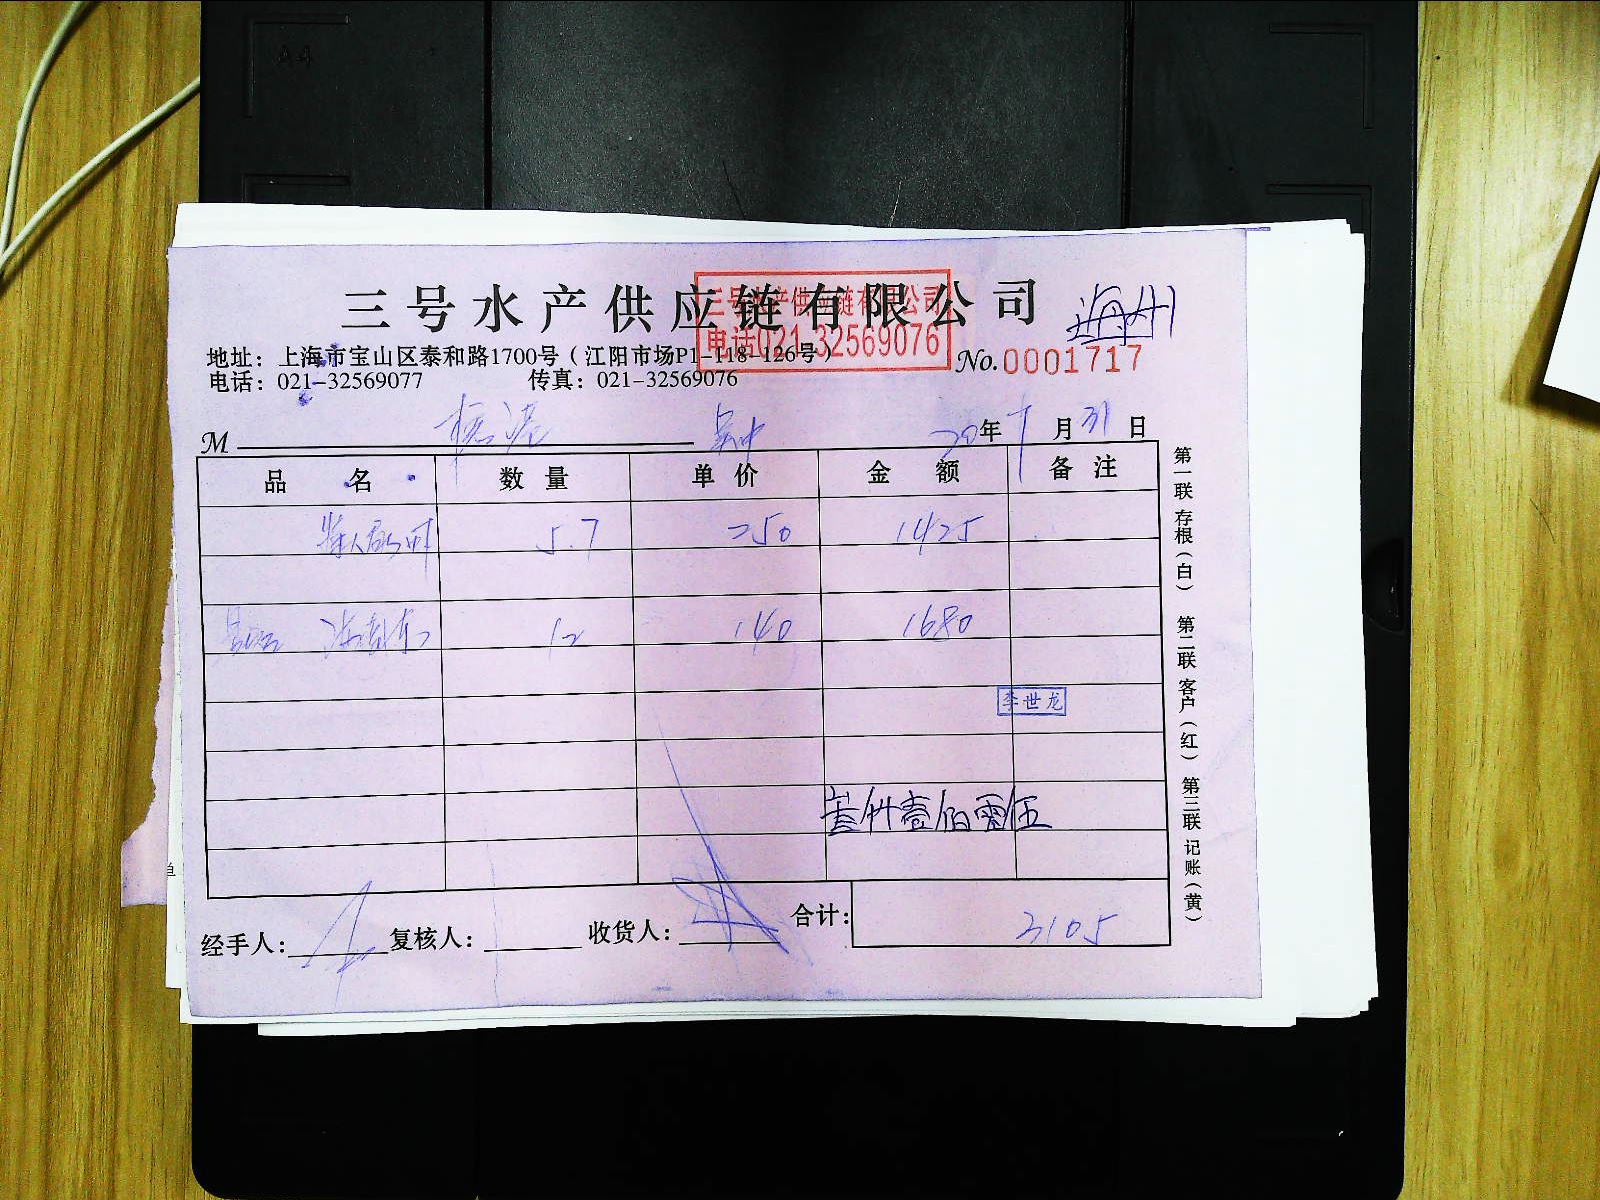 三号水产供应链有限公司
三号水产供应链有限公司
电话021-32569076
地址：上海市宝山区泰和路1700号（江阳市场P1-118-126号）
No.0001717
电话：021-32569077 传真：021-32569076
M 20年 月31日
品名 数量 单价 金额 备注
5.7 250 1425
12 140 1680
李世龙
叁仟壹佰零伍
经手人： 复核人： 收货人： 合计： 3105
第一联存根（白） 第二联客户（红） 第三联记账（黄）